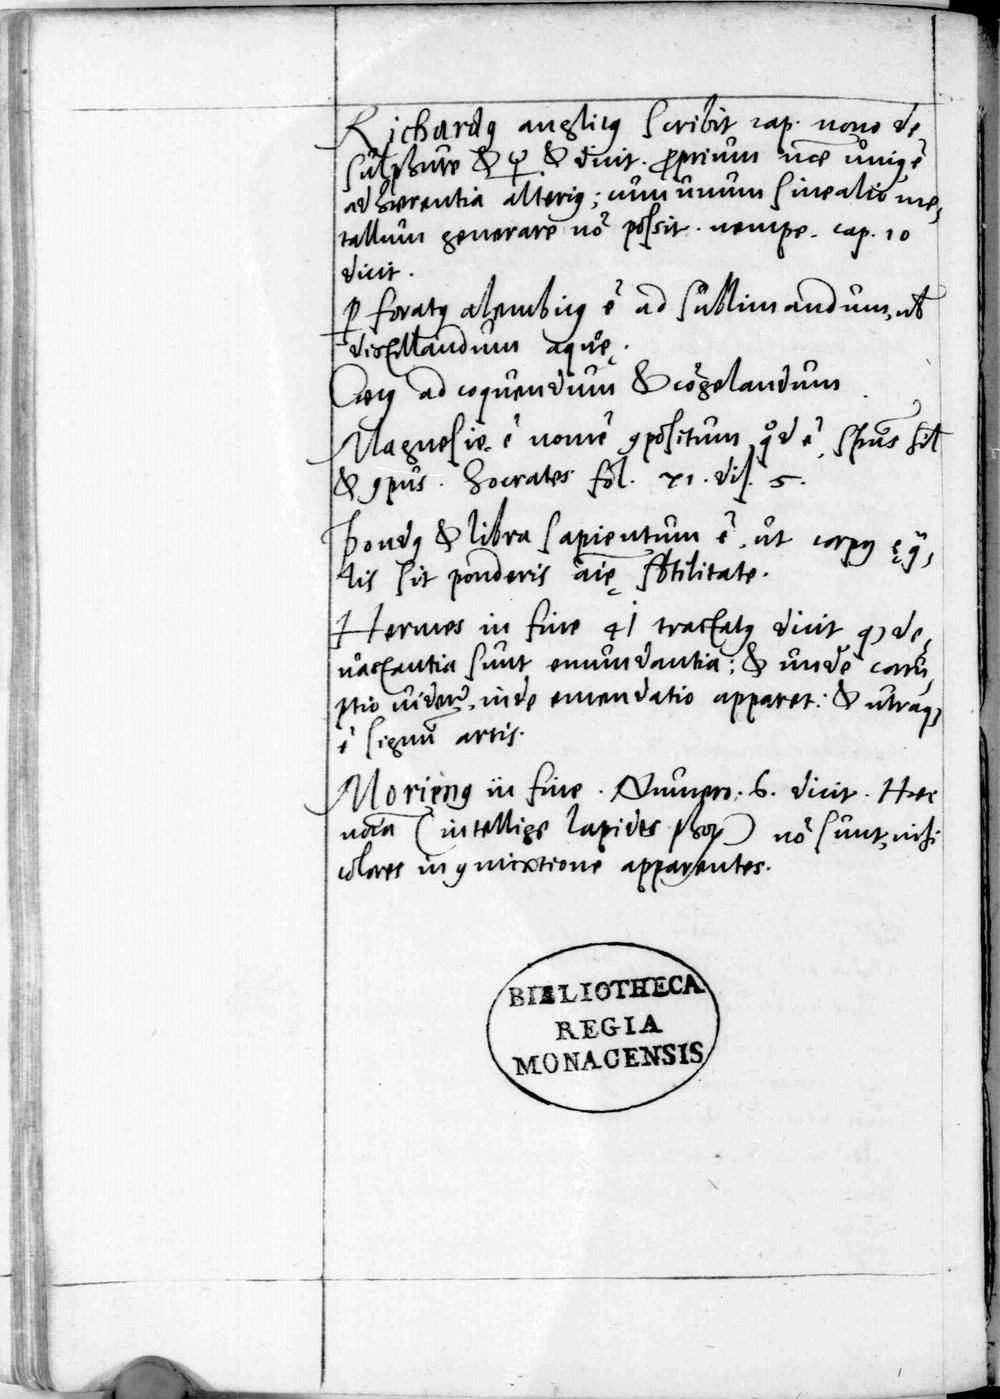 Richardꝯ anglicꝯ scribit cap. nono de
sulphure & ☿ & dicit. ꝓprium nc̄e uniꝯ ē
adhærentia alteriꝯ; cum unum sine alio me,
tallum generare nō possit. nempe. cap. 10
dicit.
ꝑforatꝯ alembicꝯ ē ad sublimandum, ut
distillandum aquę.
Cæcꝯ ad coquendum & cōgelandum
Magnesię ē nomē ꝯpositum qd ē, spūs sil
& ꝯpus. Socrates fol. XI. dis. 5.
Pondꝯ & libra sapientum ē, ut corpꝯ ęq̄,
lis sit ponderis aīę sbtilitate.
Hermes in fine 4i tractatꝯ dicit ꝙ de,
nactantia sunt emundantia; & unde corru,
ptio uidetr, inde emendatio apparet: & utraqꝫ
ē signū artis.
Morienꝯ in fine. Numero. 6. dicit. Hæc
nōīa (intellige lapides phoꝝ) nō sunt, nisi
colores in ꝯmixtione apparentes.
BIBLIOTHECA
REGIA
MONACENSIS